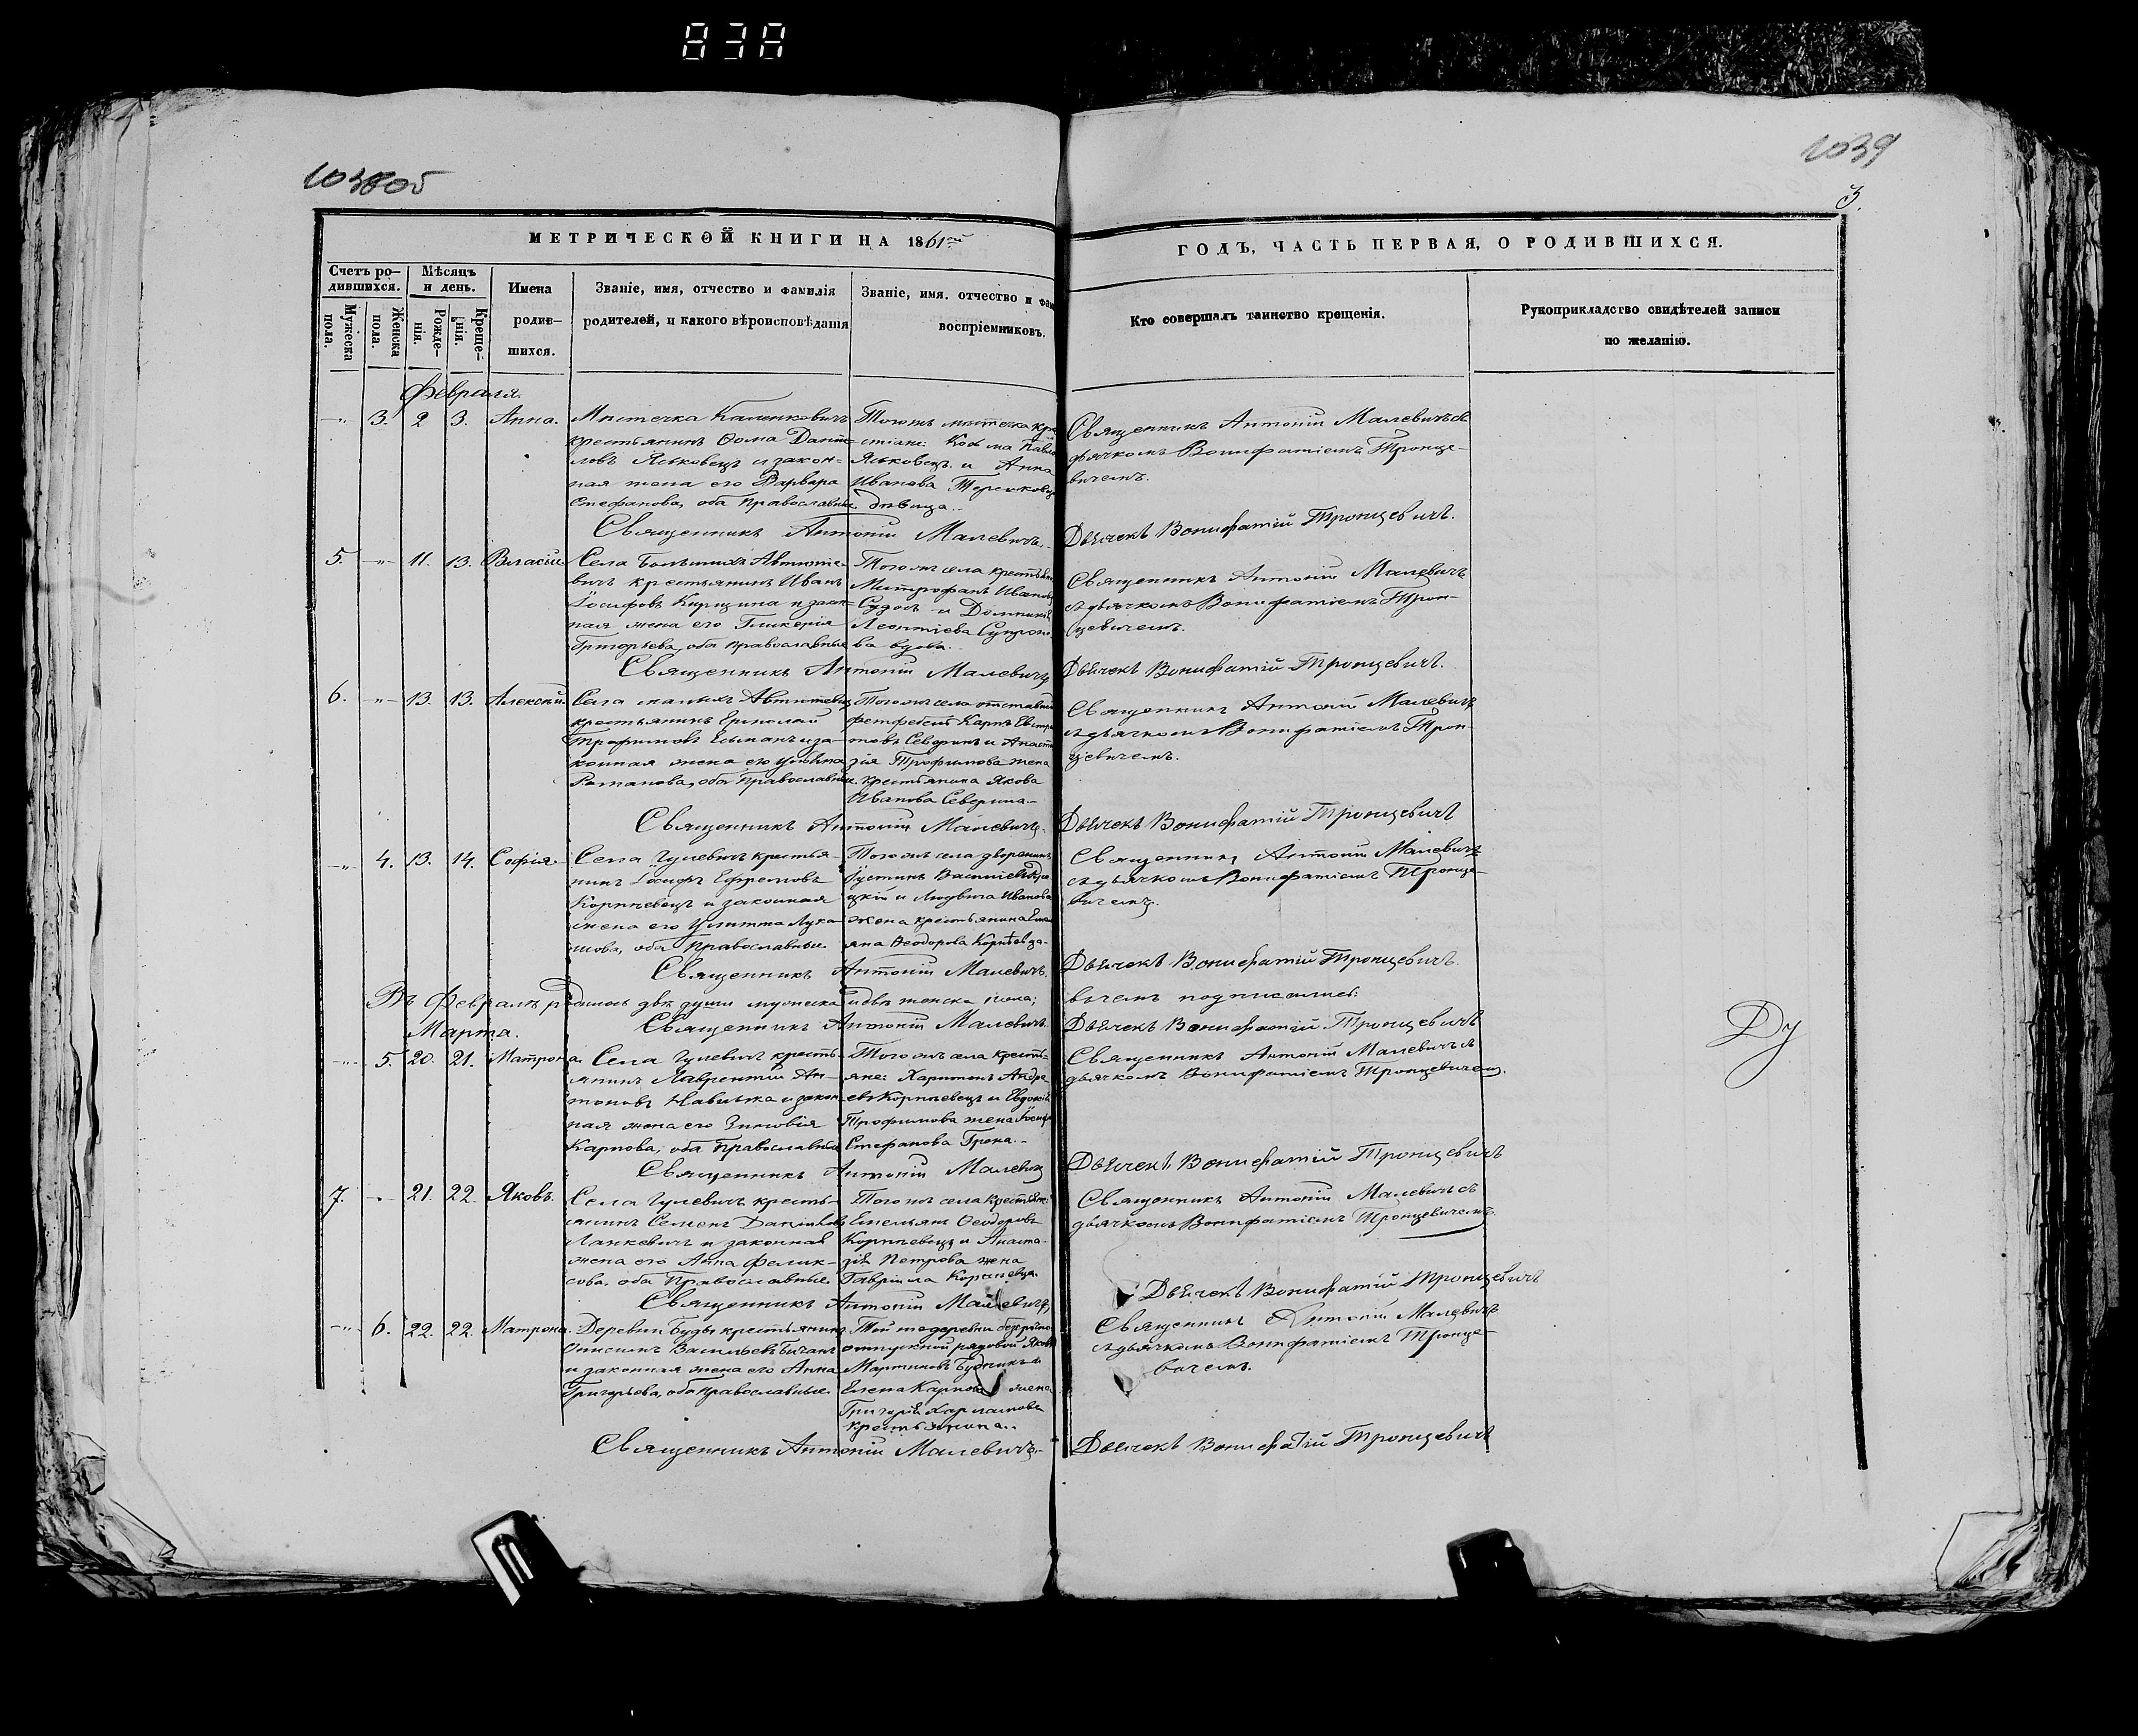 83A
1038об
1039
3.
МЕТРИЧЕСКОЙ КНИГИ НА 1861ой
ГОДЪ, ЧАСТЬ ПЕРВАЯ, О РОДИВШИХСЯ.
Счетъ ро-
дившихся.
Мужеска
пола.
Женска
пола.
Мѣсяцъ
и день.
Рожде-
нія.
Креще-
нія.
Имена
родив-
шихся.
Званіе, имя, отчество и фамилія
родителей, и какого вѣроисповѣданія
Званіе, имя. отчество и фам
воспріемниковъ.
Кто совершалъ таинство крещенія.
Рукоприкладство свидѣтелей записи
по желанію.
Февраля.
-"- 3. 2 3. Анна.
Мястечка Каленковичъ
крестьянинъ Ѳома Дани-
ловъ Яськовецъ и закон-
ная жена его Варвара
Стефанова, оба Православные
Тогожъ мястечка кре
стіане: Косьма Павло
Яськовецъ и Анна
Иванова
дѣвица..
Священникъ Антоній Малевичъ съ
дьячкомъ Вонифатіемъ Тронце-
вичемъ.
Священникъ Антоній Малевичъ.
Дьячекъ Вонифатій Тронцевичъ.
5. -"- 11. 13. Власій
Села Большихъ Автюте-
вичъ крестьянинъ Иванъ
Іосифовъ Кирщина и закон-
ная жена его Гликерія
Григорьева, оба православные
Тогожъ села крестьяне
Митрофанъ Ивановъ
Судасъ и Домникія
Леонтіева Супрон
ва вдова.
Священникъ Антоній Малевичъ
съ дьячкомъ Вонифатіемъ Трон-
цевичемъ.
Священникъ Антоній Малевичъ
Дьячекъ Вонифатій Тронцевичъ.
6. -"- 13. 13. Алексѣй.
Села малыхъ Автютевичъ
крестьянинъ Ермолай
Трофимовъ Есьманъ и за-
конная жена его Ульяна
Романова, оба Православные.
Тогожъ села отставной
фетфебель Карпъ Евстра
товъ Северинъ и Анаста
зія Трофимова жена
крестьянина Якова
Иванова Северина-
Священникъ Антоній Малевичъ
съ дьячкомъ Вонифатіемъ Трон-
цевичемъ.
Священникъ Антоній Малевичъ.
Дьячекъ Вонифатій Тронцевичъ
-"- 4. 13. 14. Софія
Села Гулевичъ крестья-
нинъ Іосифъ Ефремовъ
Корниевецъ и законная
жена его Улитта Лука-
шова, оба Православные.
Тогожъ села дворянинъ
Іустинъ Васильевъ
цкій и Людвига Иванова
жена крестьянина Емел
яна Ѳеодорова Корніевца-
Священникъ Антоній Малевичъ
съ дьячкомъ Вонифатіемъ Тронце-
вичемъ.
Священникъ Антоній Малевичъ.
Дьячекъ Вонифатій Тронцевичъ.
Въ Февралѣ родилось двѣ души мужеска и двѣ женска пола;
въ чемъ подписались:
Священникъ Антоній Малевичъ.
Дьячекъ Вонифатій Тронцевичъ
Ду
Марта.
-"- 5. 20. 21. Матрона.
Села Гулевичъ кресть-
янинъ Лаврентій Ан-
тоновъ Навилька и закон
ная жена его Зиновія
Карпова, оба Православные
Тогожъ села кресть-
яне: Харитонъ Андре
евъ Корниевецъ и Евдокія
Трофимова жена Іосифа
Стефанова Грека.-
Священникъ Антоній Малевичъ съ
дьячкомъ Вонифатіемъ Тронцевичемъ.
Священникъ Антоній Малевичъ
Дьячекъ Вонифатій Тронцевичъ
7. -"- 21. 22. Яковъ.
Села Гулевичъ кресть-
янинъ Семенъ Даниловъ
Ланкевичъ и законная
жена его Анна Фелик-
сова, оба Православные.
Тогожъ села крестьяне:
Емельянъ Ѳеодоровъ
Корниевецъ и Анаста-
зія Петрова жена
Гавріила Корниевца.
Священникъ Антоній Малевичъ съ
дьячкомъ Вонифатіемъ Тронцевичемъ.
Священникъ Антоній Малевичъ,
Дьячекъ Вонифатій Тронцевичъ
-"- 6. 22. 22. Матрона.
Деревни Буды крестьянинъ
Онисимъ Васильевъ Бичанъ
и законная жена его Анна
Григорьева, оба православные.
Той же деревни безсрочно
отпускной рядовой Яковъ
Мартиновъ Будникъ и
Елена Карпова жена
Григорія Харламова
крестьянина..
Священникъ Антоній Малевичъ
съ дьячкомъ Вонифатіемъ Тронце-
вичемъ.
Священникъ Антоній Малевичъ.-
Дьячекъ Вонифатій Тронцевичъ